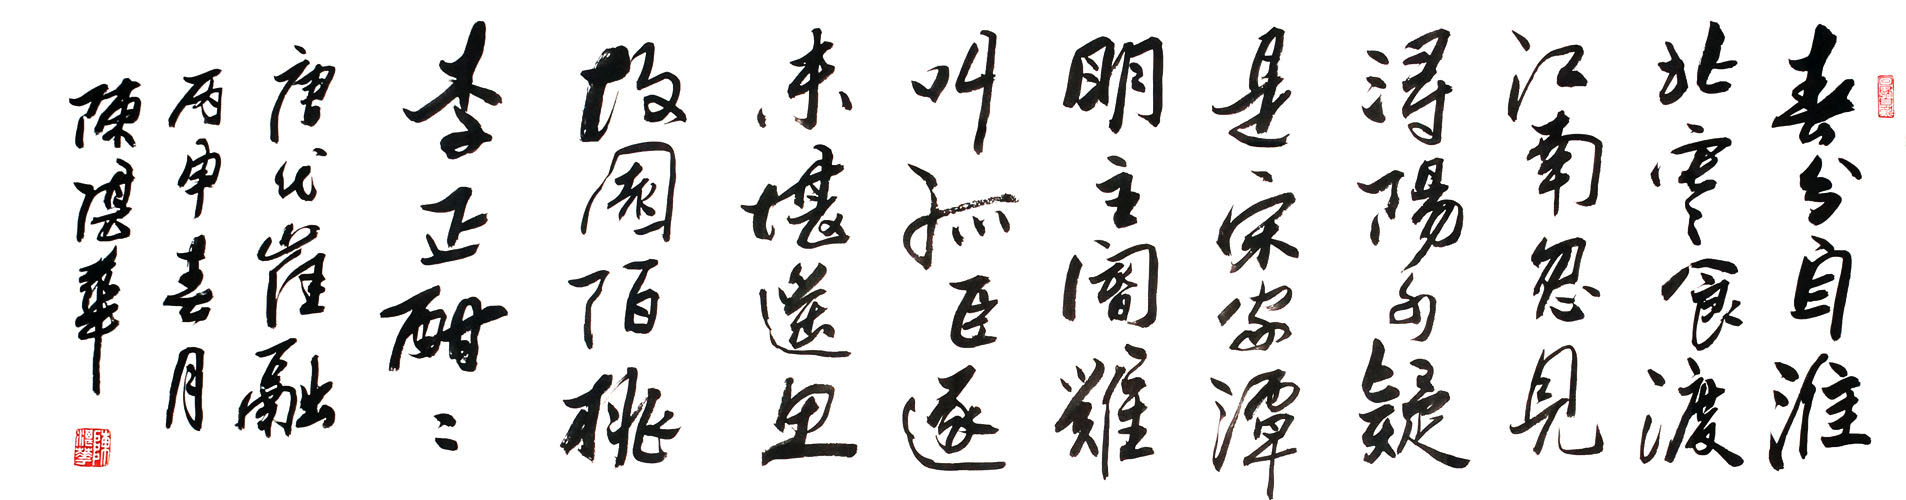 春分自淮
北寒食渡
江南忽見
潯陽水疑
是宋家潭
明主閽難
叫孤臣逐
未堪遥思
故園陌桃
李正酣〻
唐代崔融
丙申春月
陳湛華